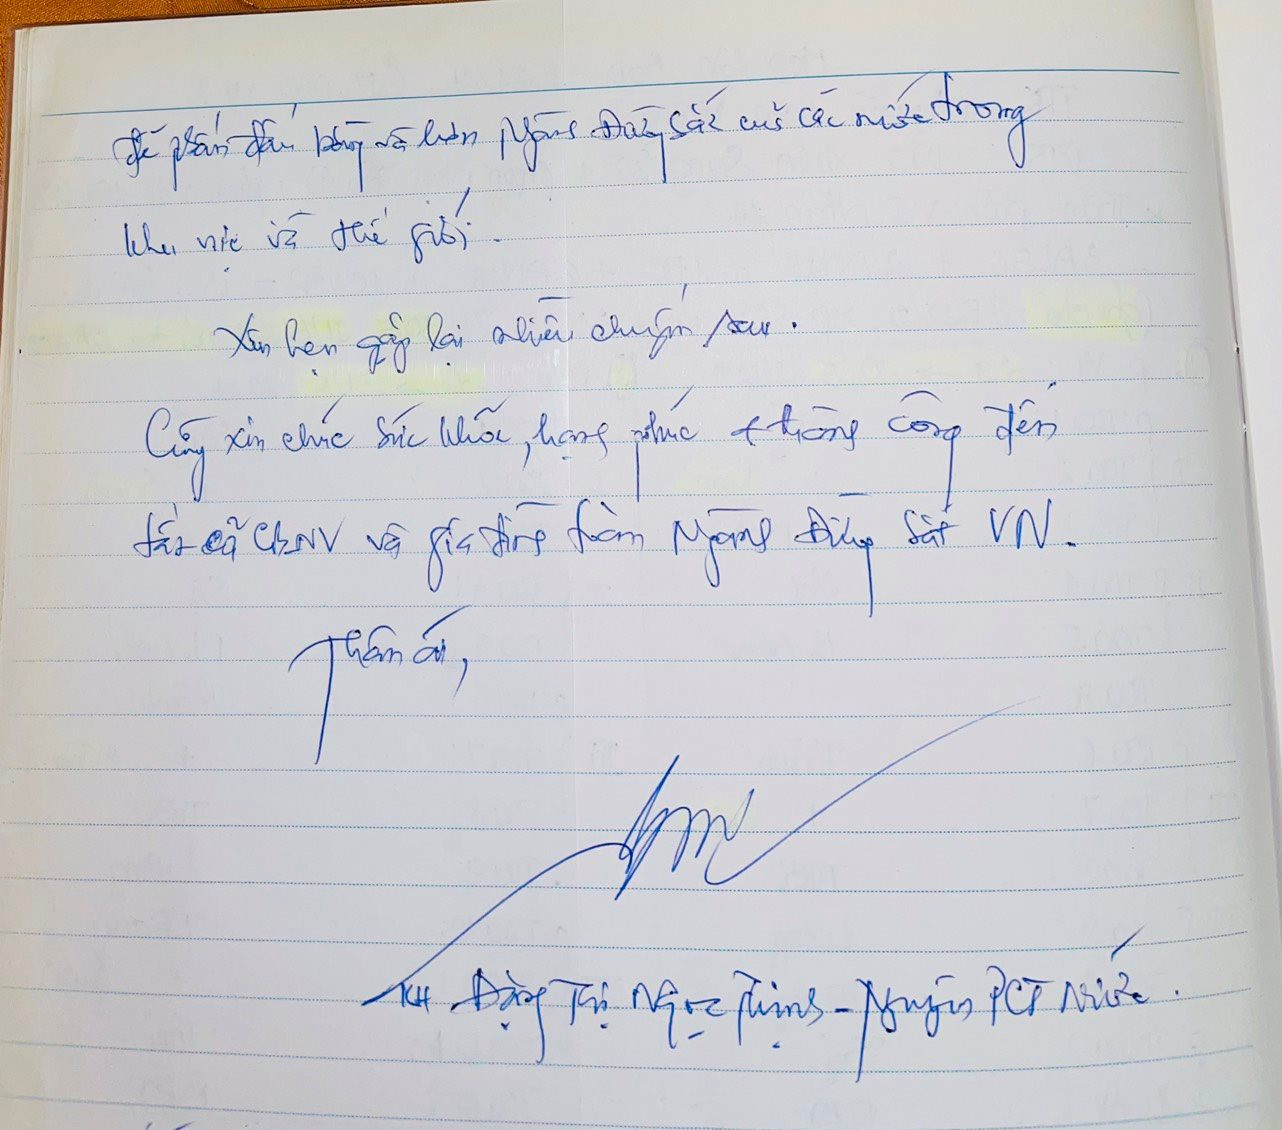 để phấn đấu bằng và hơn Ngành Đường Sắt của các nước trong
khu vực và thế giới.
Xin hẹn gặp lại nhiều chuyến sau.
Cũng xin chúc sức khỏe, hạnh phúc + thành công đến
tất cả CBNV và gia đình toàn Ngành Đường Sắt VN.
Thân ái,
KH Đặng Thị Ngọc Thịnh - Nguyên PCT Nước.